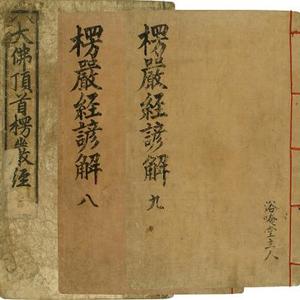 大佛頂首楞嚴經
楞嚴經諺解 八
楞嚴經諺解 九
浴晦堂主人